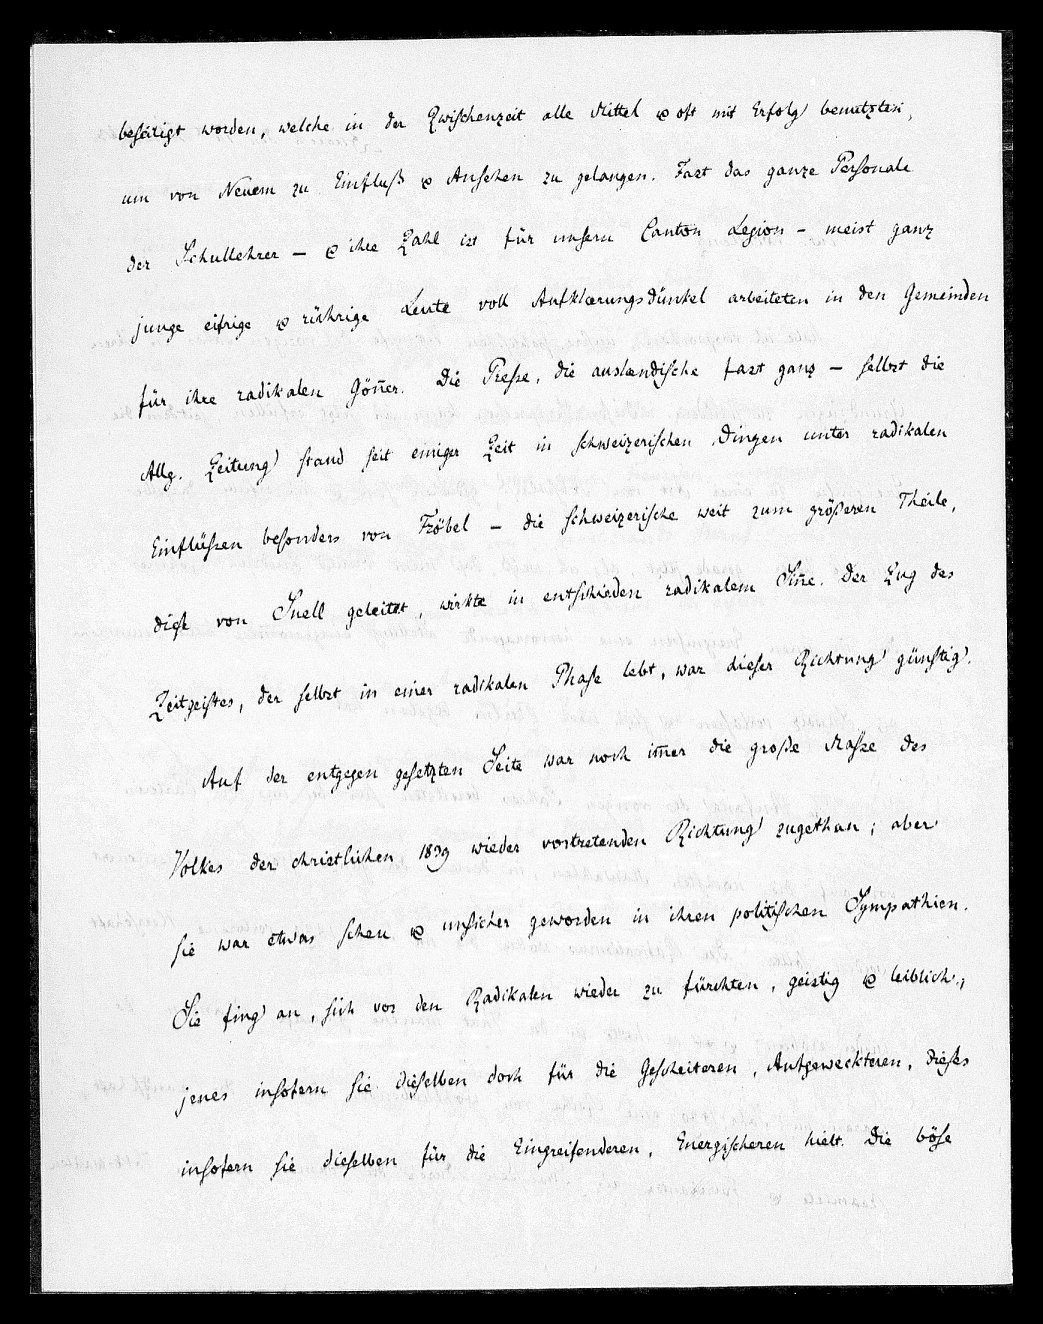 beseitigt worden, welche in der Zwischenzeit alle Mittel & oft mit Erfolg benutzten,
um von Neuem zu Einfluß & Ansehen zu gelangen. Fast das ganze Personale
der Schullehrer – & ihre Zahl ist für unsern Canton Legion – meist ganz
junge eifrige & rührige Leute voll Aufklærungsdünkel arbeiteten in den Gemeinden
für ihre radikalen Gön̄er. Die Presse, die auslændische fast ganz – selbst die
Allg. Zeitung stand seit einiger Zeit in schweizerischen Dingen unter radikalen
Einflüssen besonders von Fröbel – die schweizerische weit zum größeren Theile,
diese von Snell geleitet, wirkte in entschieden radikalem Sin̄e. Der Zug des
Zeitgeistes, der selbst in einer radikalen Phase lebt, war dieser Richtung günstig.
Auf der entgegen gesetzten Seite war noch im̄er die große Masse des
Volkes der christlichen 1839 wieder vortretenden Richtung zugethan; aber
sie war etwas scheu & unsicher geworden in ihren politischen Sympathien.
Sie fing an, sich vor den Radikalen wieder zu fürchten, geistig & leiblich;
jenes insofern sie dieselben doch für die Gescheiteren, Aufgeweckteren, dieses
insofern sie dieselben für die Eingreifenderen, Energischeren hielt. Die böse